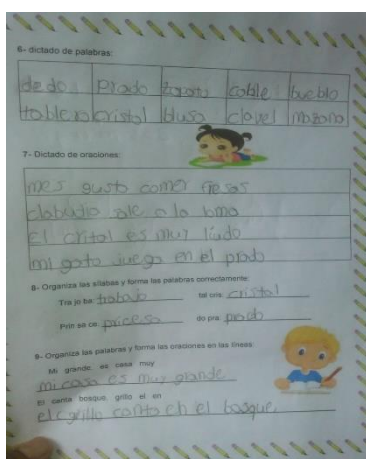 6- dictado de palabras:
dedo prado zapato coble bueblo
toblero cristol blusa clavel mozono
7- Dictado de oraciones:
mes gusto comer fresas
clabudio sle a la
El critol es muy lido
mi gato juego en el prado
8- Organiza las sílabas y forma las palabras correctamente:
Tra jo ba: trabajo tal cris: cristol
Prin sa ce: pricesa do pra: prado
9- Organiza las palabras y forma las oraciones en las líneas:
Mi grande es casa muy
mi casa es muy grande
El canta bosque, grillo el en
el grillo canta en el bosque.